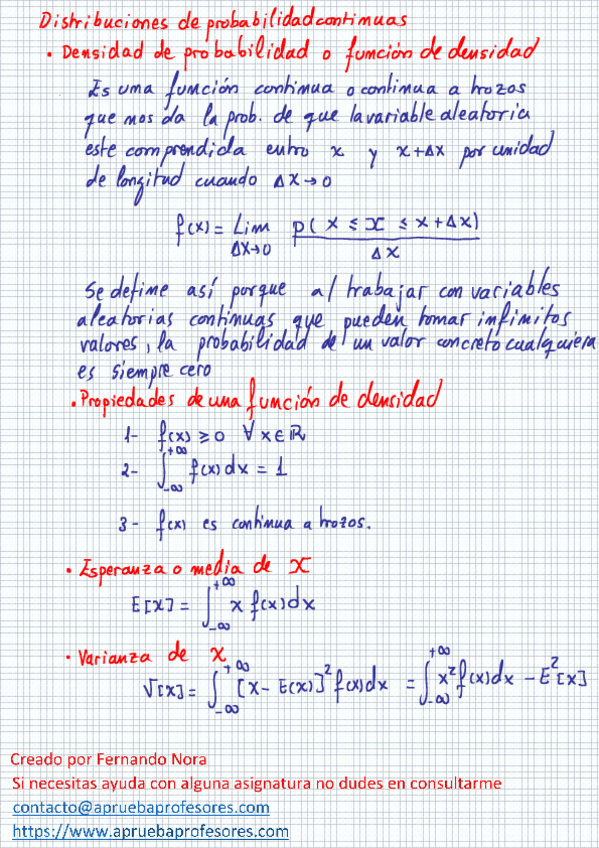 Distribuciones de probabilidad continuas
• Densidad de probabilidad o función de densidad
Es una función continua o continua a trozos
que nos da la prob. de que la variable aleatoria
este comprendida entre x y x+Δx por unidad
de longitud cuando Δx→0
f(x) = Lim Δx→0 p( x ≤ X ≤ x+Δx) / Δx
Se define así porque al trabajar con variables
aleatorias continuas que pueden tomar infinitos
valores, la probabilidad de un valor concreto cualquiera
es siempre cero
• Propiedades de una función de densidad
1- f(x) ≥ 0 ∀ x ∈ ℝ
2- ∫_{-∞}^{+∞} f(x) dx = 1
3- f(x) es continua a trozos.
• Esperanza o media de X
E[x] = ∫_{-∞}^{+∞} x f(x) dx
• Varianza de x
V[x] = ∫_{-∞}^{+∞} [x - E(x)]² f(x) dx = ∫_{-∞}^{+∞} x² f(x) dx - E²[x]
Creado por Fernando Nora
Si necesitas ayuda con alguna asignatura no dudes en consultarme
contacto@apruebaprofesores.com
https://www.apruebaprofesores.com